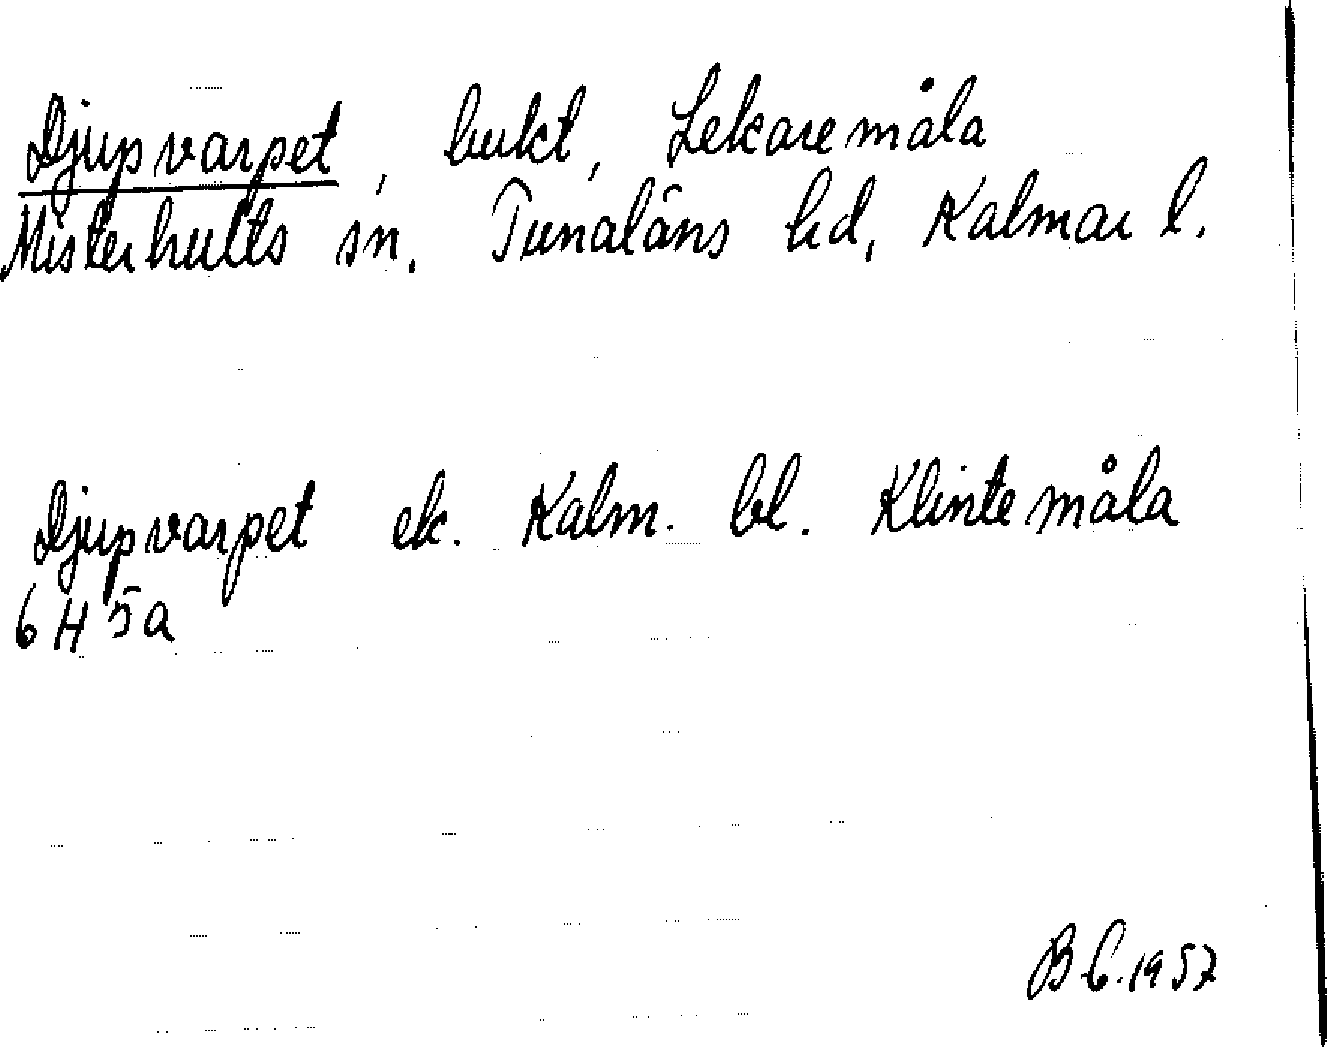 Djupvarpet, bukt, Lekaremåla
Misterhults sn. Tunaläns hd, Kalmar l.
Djupvarpet ek. Kalm. bl. Klintemåla
6 H 5a
B.C. 1957